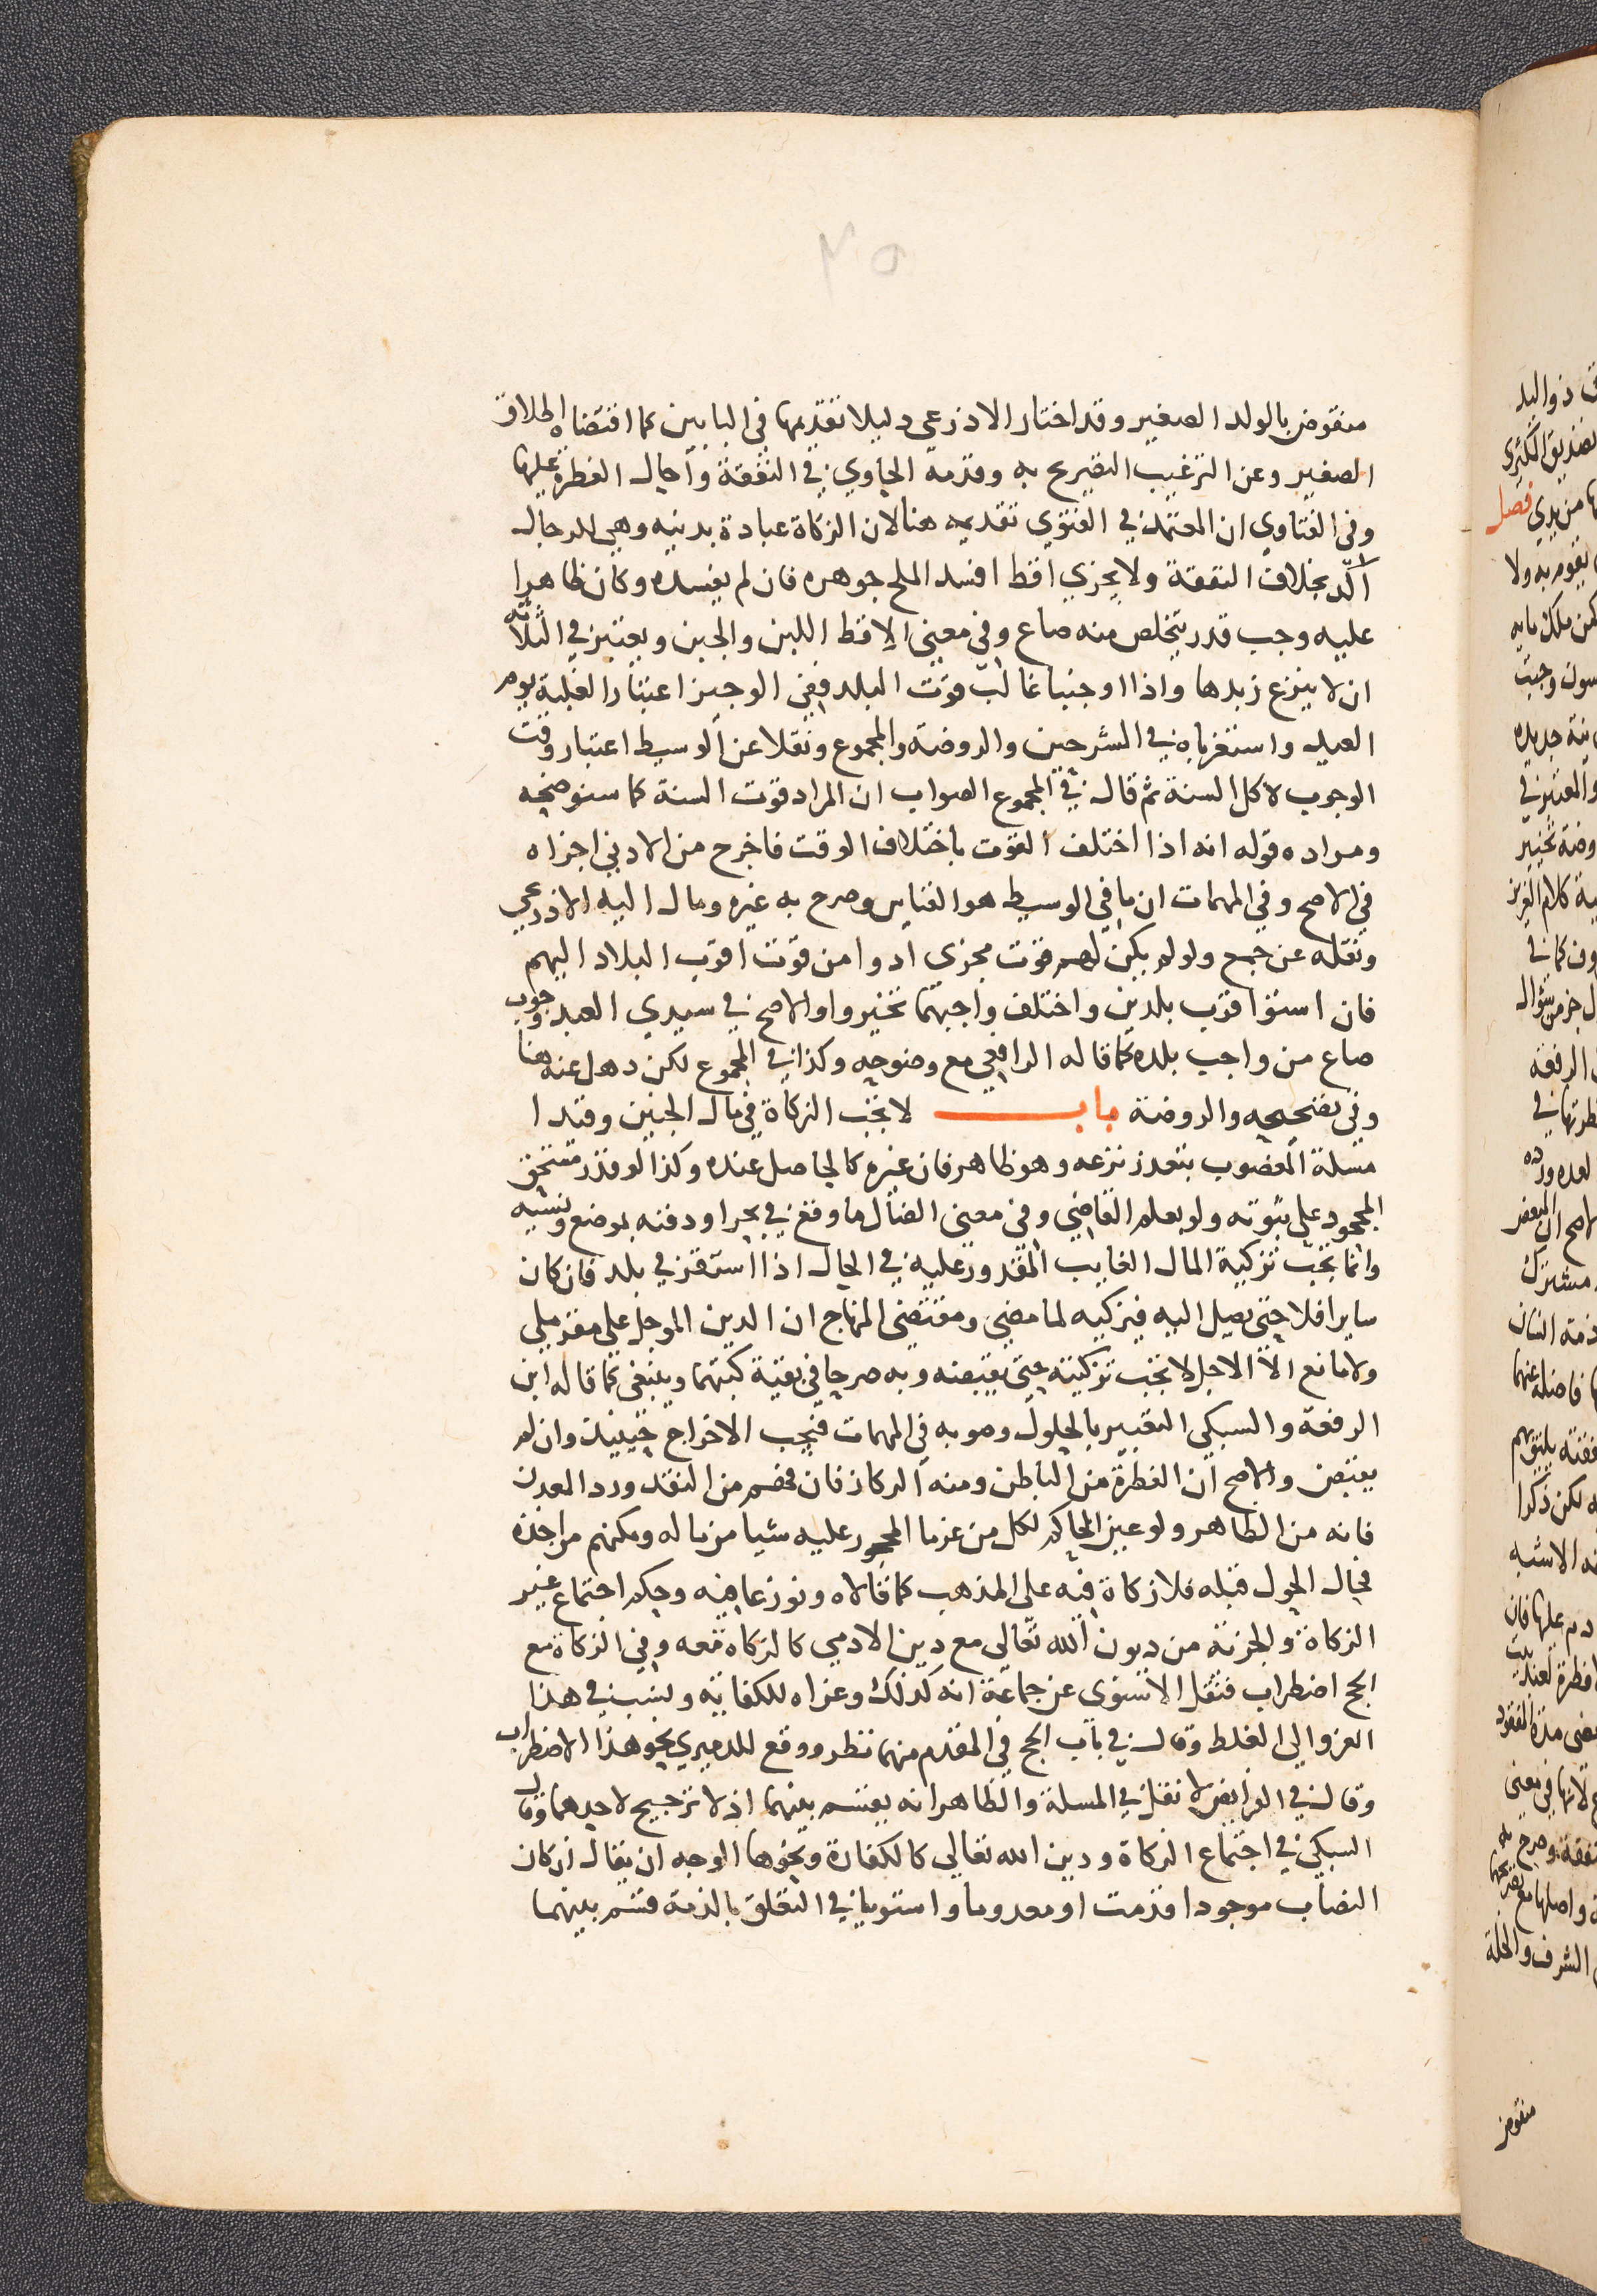 منقوض بالولد الصغير وقد اختار الاذرعي دليلا تقديمها في البابين كما اقتضاه اطلاق
الصغير وعن الترغيب التصريح به وقدمه الحاوي في النفقة وأحال الفطرة عليها
وفي الفتاوي ان المعتمد في الفتوى تقديمه هنا لان الزكاة عبادة بدنيه وهي للرجال
آكد بخلاف النفقة ولا يجزي اقط افسد الملح جوهره فان لم يفسده وكان ظاهرا
عليه وجب قدر يتخلص منه صاع وفي معنى الاقط اللبن والجبن ويعتبر في الثلاثه
ان لا ينزع زبدها واذا اوجبنا غالب قوت البلد ففي الوجيز اعتبار الغلبة يوم
العيد واستغرباه في الشرحين والروضة والمجموع ونقلا عن الوسيط اعتبار وقت
الوجوب لا كل السنة ثم قال في المجموع الصواب ان المراد قوت السنة كما سنوضحه
ومراده قوله انه اذا اختلف القوت باختلاف الوقت فاخرج من الادني اجزاه
في الاصح وفي المهمات ان ما في الوسيط هو القياس وصرح به غيره ومال اليه الاذرعي
ونقله عن جمع ولو لم يكن لهم قوت مجزى ادوا من قوت اقرب البلاد اليهم
فان استوا قرب بلدين واختلف واجبهما تخيروا والاصح في سيدي العبد وجوب
صاع من واجب بلده كما قاله الرافعي مع وضوحه وكذا في المجموع لكن دهل عنه هنا
وفي تصحيحه والروضة باب لا تجب الزكاة في مال الجنين وقيد ا
مسلة المغصوب بتعذر نزعه وهو ظاهر فان غيره كالحاصل عنده وكذا لو قدر مستحق
المجحود على ثبوته ولو بعلم القاضي وفي معنى الضال ما وقع في بحر او دفنه بموضع ونسيه
وانما تجب تزكية المال الغايب المقدور عليه في الحال اذا استقر في بلد فان كان
سايرا فلا حتى يصل اليه فيزكيه لما مضي ومقتضى المنهاج ان الدين الموجل على مقر ملي
ولا مانع الا الاجل لا تجب تزكيته حتى يقبضه وبه صرحا في بقية كتبهما وينبغي كما قاله ابن
الرفعة والسبكي التعبير بالحلول وصوبه في المهمات فيجب الاخراج حينيذ وان لم
يقبض والاصح ان الفطرة من الباطن ومنه الركاز فان قسم من النقد ورد المعدن
فانه من الظاهر ولو عين الحاكم لكل من غرما المحجور عليه شيا من ماله ومكنهم من اخذه
فحال الحول قبله فلا زكاة فيه على المذهب كما قالاه ونوزعا فيه وحكم اجتماع غير
الزكاة والجزية من ديون الله تعالى مع دين الادمي كالزكاة معه وفي الزكاة مع
الحج اضطراب فنقل الاسنوي عن جماعة انه كذلك وعزاه للكفاية ونسب في هذا
العزو الى الغلط وقال في باب الحج في المقدم منهما نظر ووقع للدميري نحو هذا الاضطراب
وقال في الفرايض لا نقل في المسلة والظاهر انه يقسم بينهما اذ لا ترجيح لاحدهما وقال
السبكي في اجتماع الزكاة ودين الله تعالي كالكفارة ونحوها الوجه ان يقال ان كان
النصاب موجودا قدمت او معدوما واستويا في التعلق بالذمة قسم بينهما